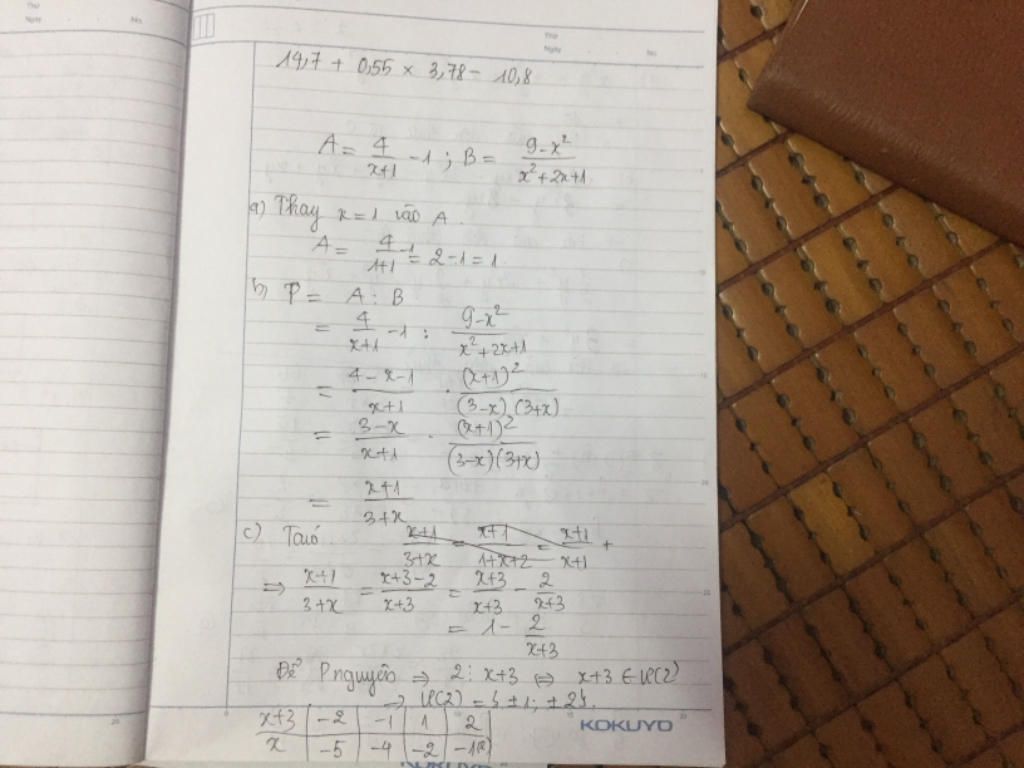 Thứ
Ngày No.
Thứ
Ngày No.
19,7 + 0,55 × 3,78 - 10,8
A = 4/(x+1) - 1 ; B = (9-x²)/(x²+2x+1)
a) Thay x = 1 vào A.
A = 4/(1+1) - 1 = 2 - 1 = 1.
b) P = A : B
= 4/(x+1) - 1 : (9-x²)/(x²+2x+1)
= (4-x-1)/(x+1) · (x+1)²/((3-x)(3+x))
= (3-x)/(x+1) · (x+1)²/((3-x)(3+x))
= (x+1)/(3+x)
c) Ta có (x+1)/(3+x) = (x+1)/(1+x+2) = (x+1)/(x+1) +
⇒ (x+1)/(3+x) = (x+3-2)/(x+3) = (x+3)/(x+3) - 2/(x+3)
= 1 - 2/(x+3)
Để P nguyên ⇒ 2 : x+3 ⇔ x+3 ∈ Ư(2)
⇒ Ư(2) = {±1; ±2}.
x+3 | -2 | -1 | 1 | 2
x | -5 | -4 | -2 | -1
KOKUYO
KOKUYO